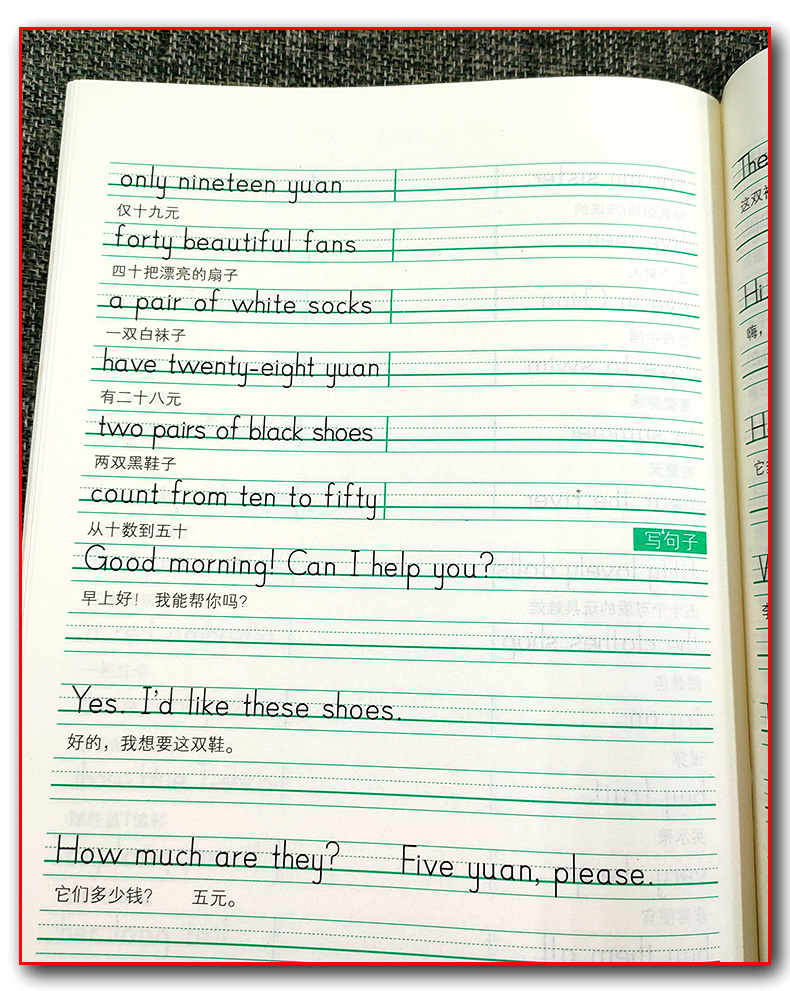 only nineteen yuan
仅十九元
forty beautiful fans
四十把漂亮的扇子
a pair of white socks
一双白袜子
have twenty-eight yuan
有二十八元
two pairs of black shoes
两双黑鞋子
count from ten to fifty
从十数到五十
写句子
Good morning! Can I help you?
早上好！ 我能帮你吗？
Yes. I'd like these shoes.
好的，我想要这双鞋。
How much are they? Five yuan, please.
它们多少钱？ 五元。
The
这双
Hi
嗨，